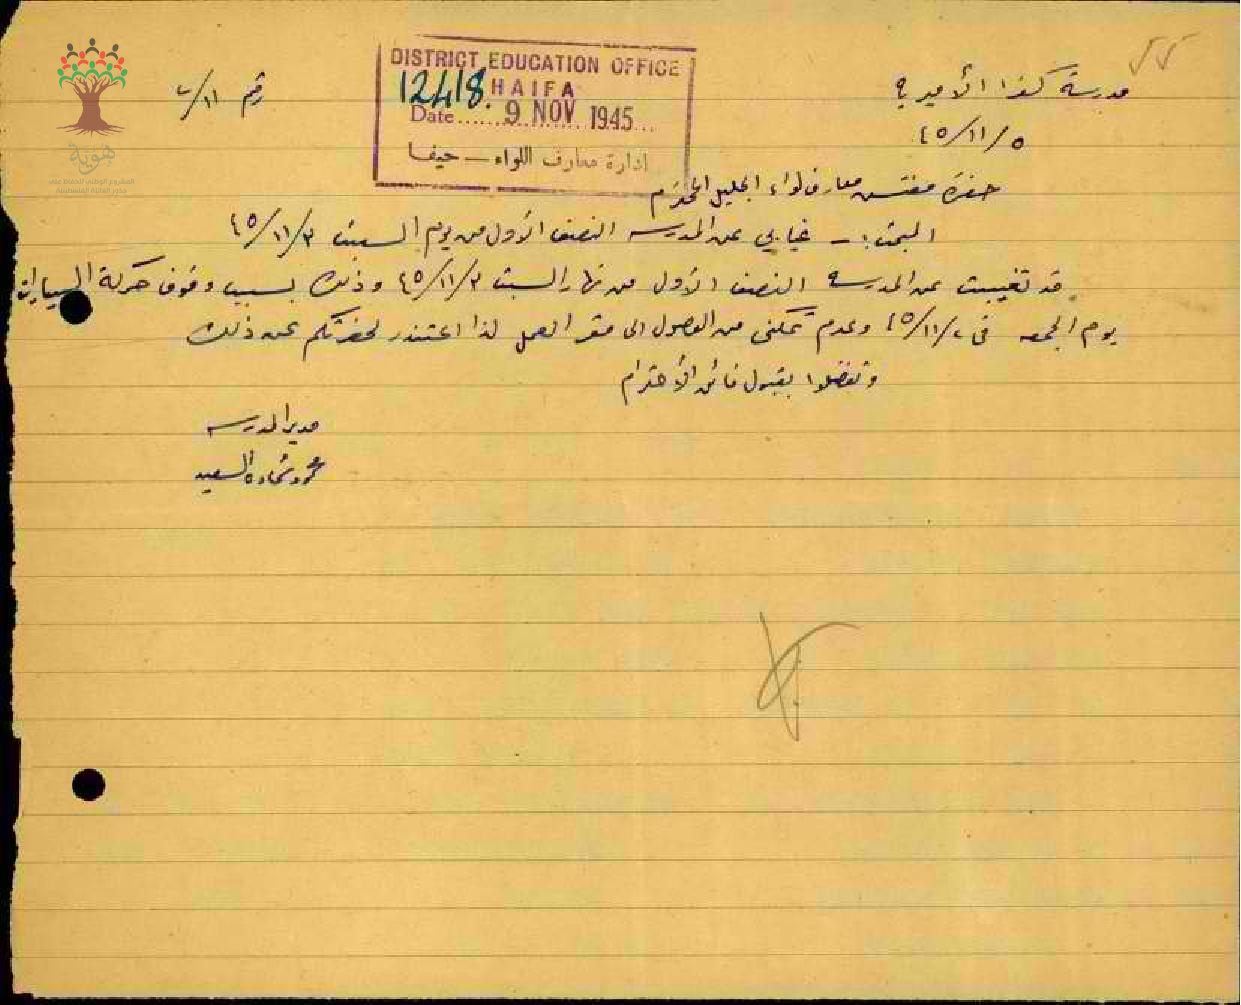 مدرسة كفرا الأميرية
رقم ٦/١١
٤٥/١١/٥
DISTRICT EDUCATION OFFICE
HAIFA
12418.
Date 9 NOV 1945
ادارة معارف اللواء - حيفا
حضرة مفتش معارف لواء الجليل المحترم
المبحث :- غيابي عن المدرسه النصف الأول من يوم السبت ٤٥/١١/٣
قد تغيبت عن المدرسه النصف الأول من نهار السبت ٤٥/١١/٣ وذلك بسبب وقوف حركة السيارات
يوم الجمعه في ٤٥/١١/٢ وعدم تمكني من الوصول الى مقر العمل لذا اعتذر لحضرتكم عن ذلك
وتفضلوا بقبول فائق الأحترام
مدير المدرسه
محمود شحاده السعيد
هوية